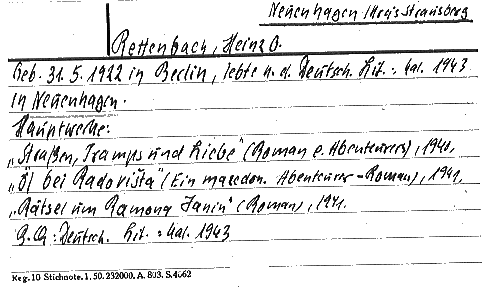 Neuenhagen Kreis Strausberg
Rettenbach, Heinz O.
Geb. 31.5.1922 in Berlin, lebte n. d. Deutsch. Lit.: Kal. 1943
in Neuenhagen.
Hauptwerke:
„Straßen, Tramps und Liebe" (Roman e. Abenteurers), 1940,
„Öl bei Radovišta" (Ein mazedon. Abenteurer-Roman), 1941,
„Rätsel um Ramona Janin" (Roman), 1941.
Deutsch. Lit.: Kal. 1943
Reg. 10 Stichnote. 1. 50. 232000. A. 803. S. 4062